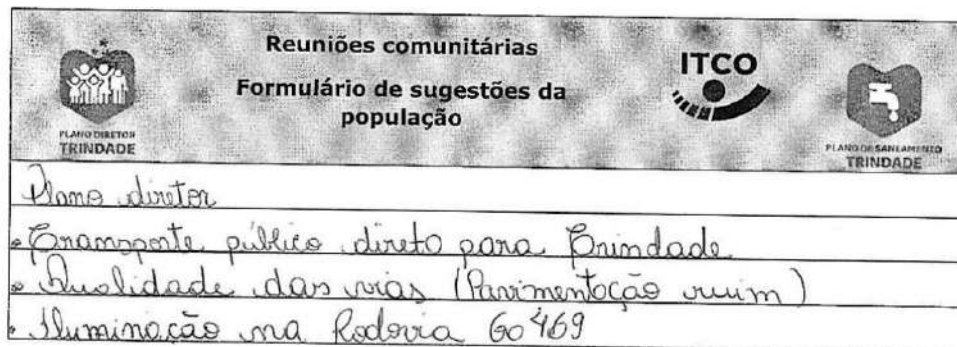 Reuniões comunitárias
Formulário de sugestões da
população
PLANO DIRETOR
TRINDADE
ITCO
PLANO DE SANEAMENTO
TRINDADE
Plano diretor
• Transporte público direto para Trindade
• Qualidade das vias (Pavimentação ruim)
• Iluminação na Rodovia GO 469